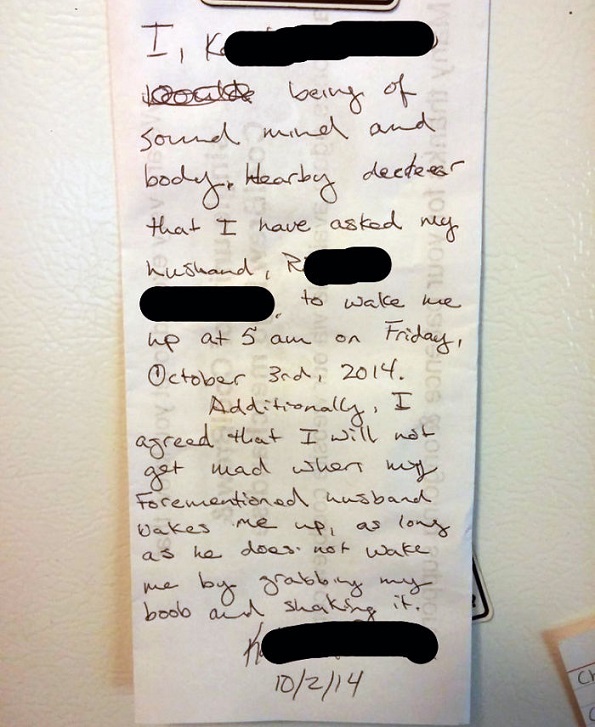 I, K
being of
sound mind and
body, Hearby decleer
that I have asked my
husband, R
to wake me
up at 5 am on Friday,
October 3rd, 2014.
Additionally, I
agreed that I will not
get mad when my
Forementioned husband
wakes me up, as long
as he does not wake
me by grabbing my
boob and shaking it.
K
10/2/14